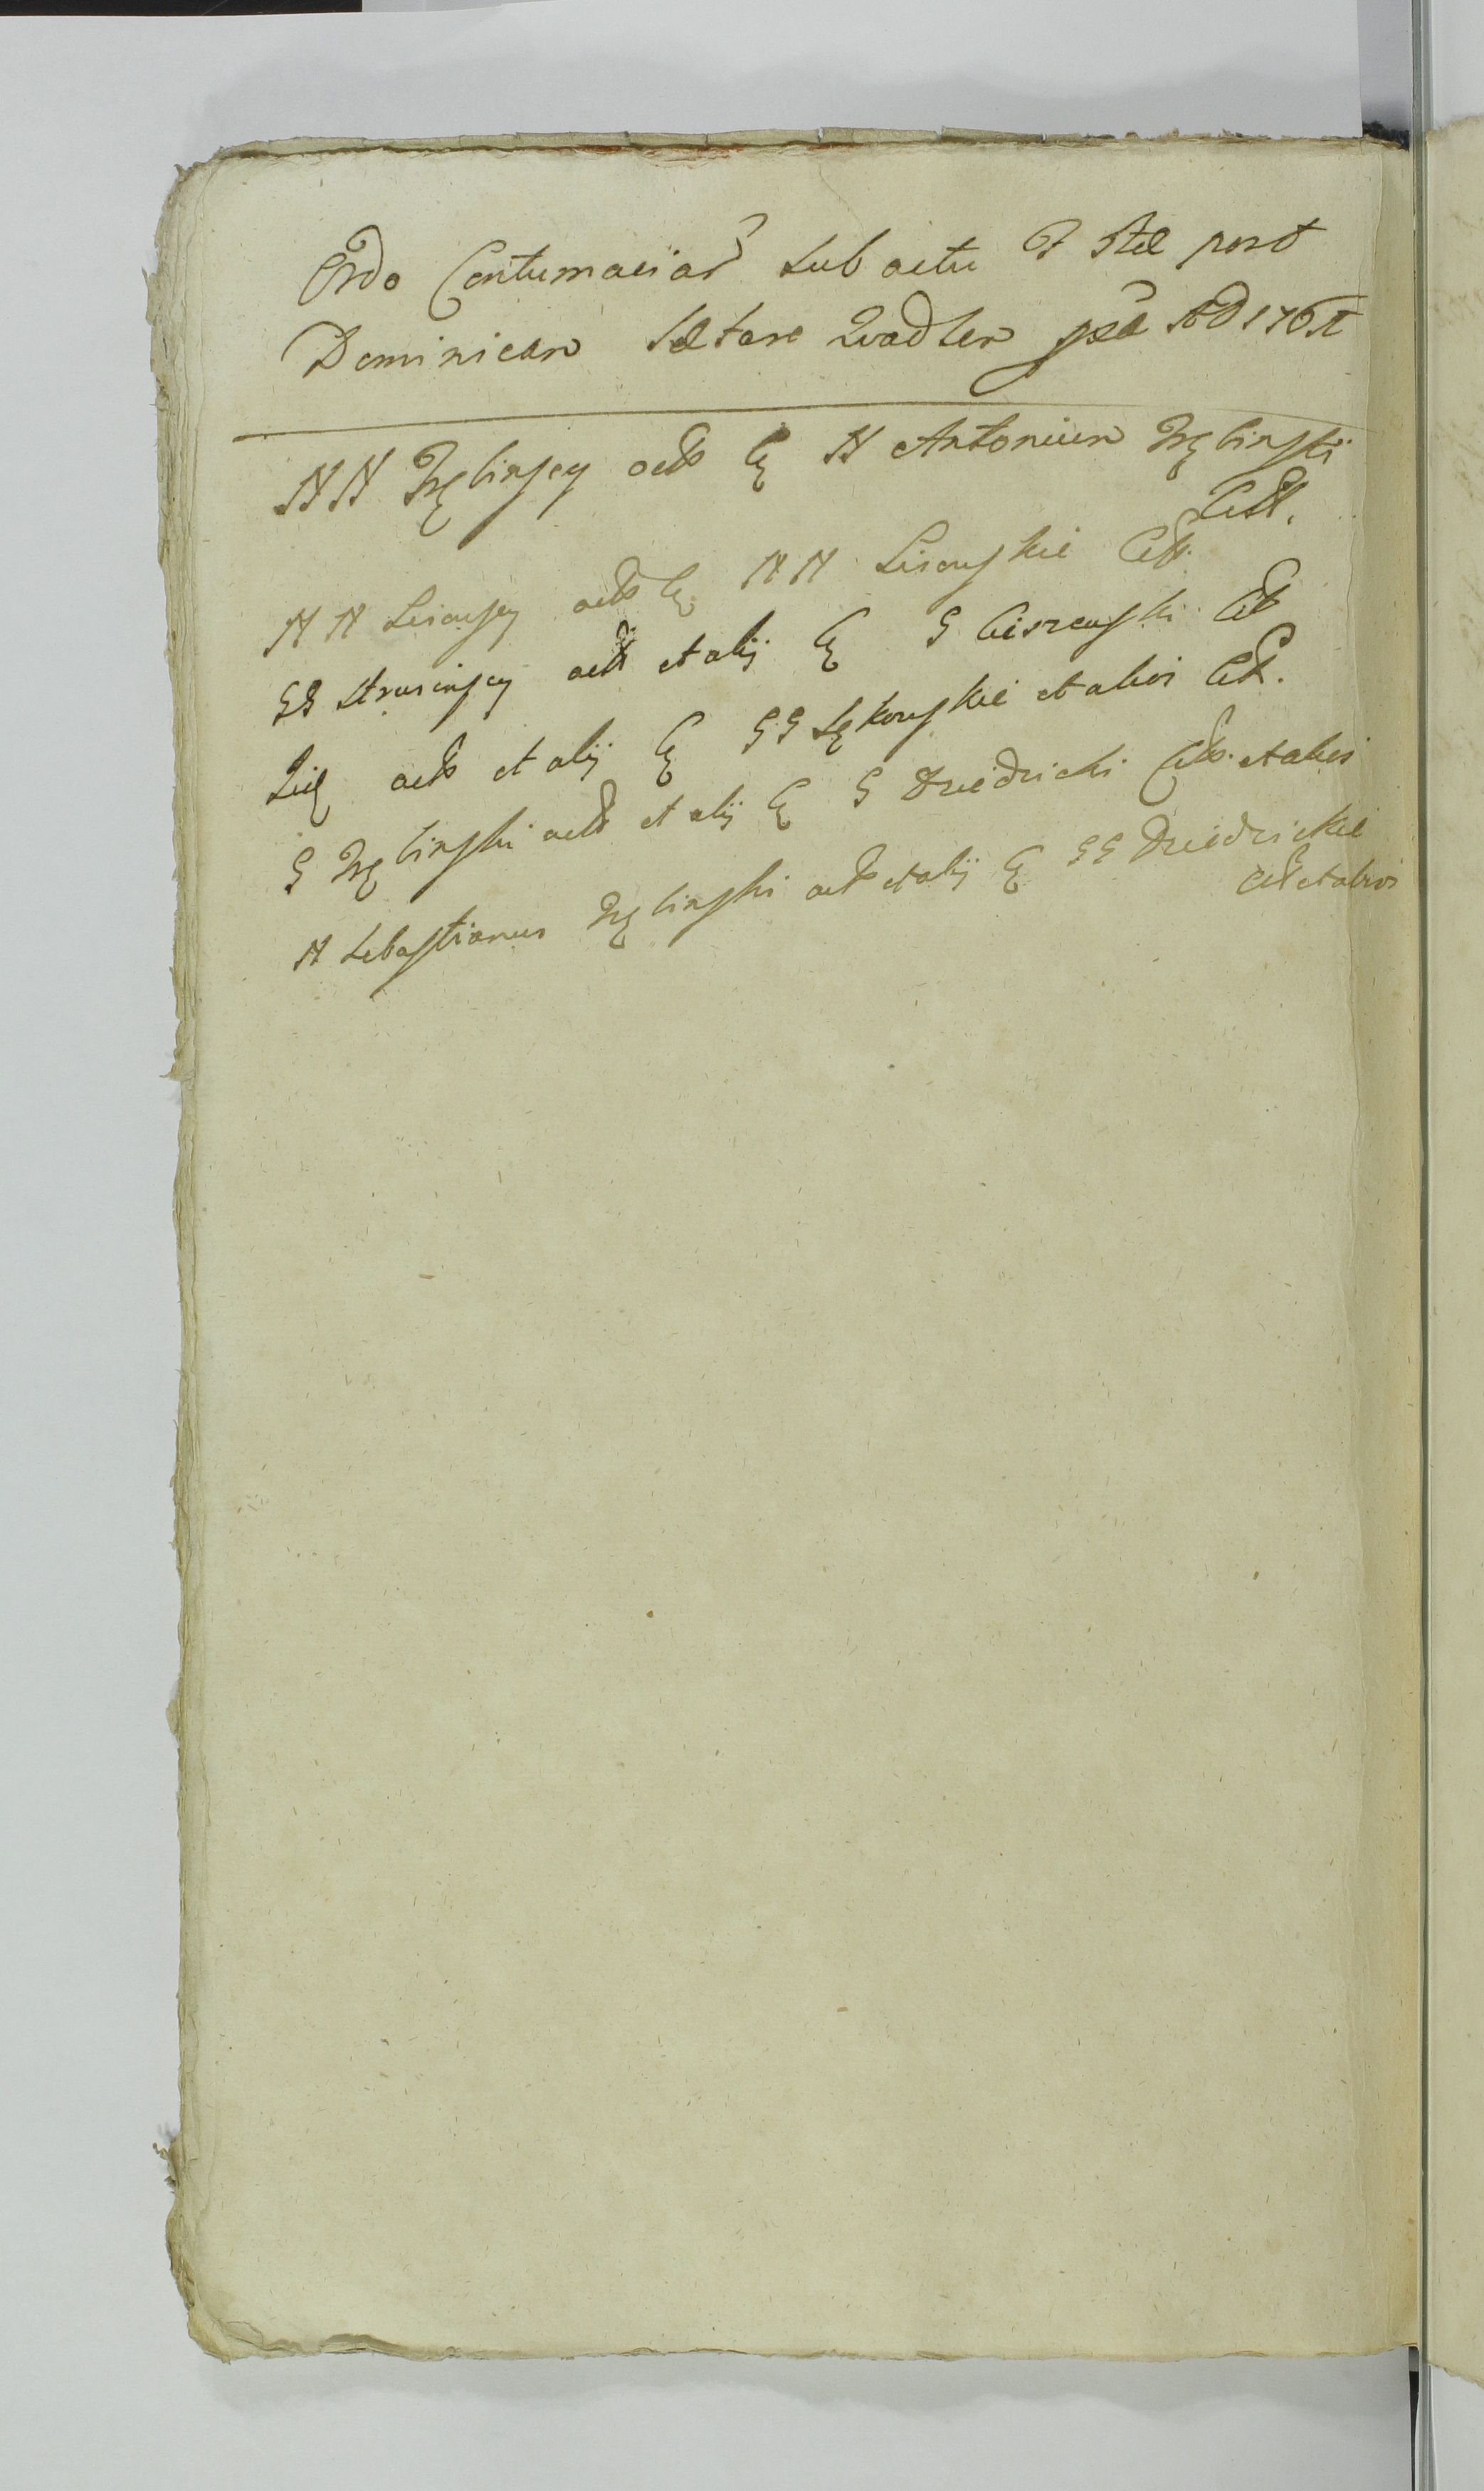 Ordo Contumaciar sub actu F 2da post
Dominicam Lætare Quadlem pxa AD 176
NN Węglinscy actr C N Antonium Węglinski
Citt.
NN Lisowscy actr C NN Lisowskie Citt.
GG Strusinscy actr et alij C G Ciszewski Citt
Ciż actr et alij C GG Łękowskie et alios Citt.
G Węglinski actr et alij C G Dziedzicki Citt. et alios
N Sebastianus Węglinski actr et alij C GG Dziedzickie
Citt et alios